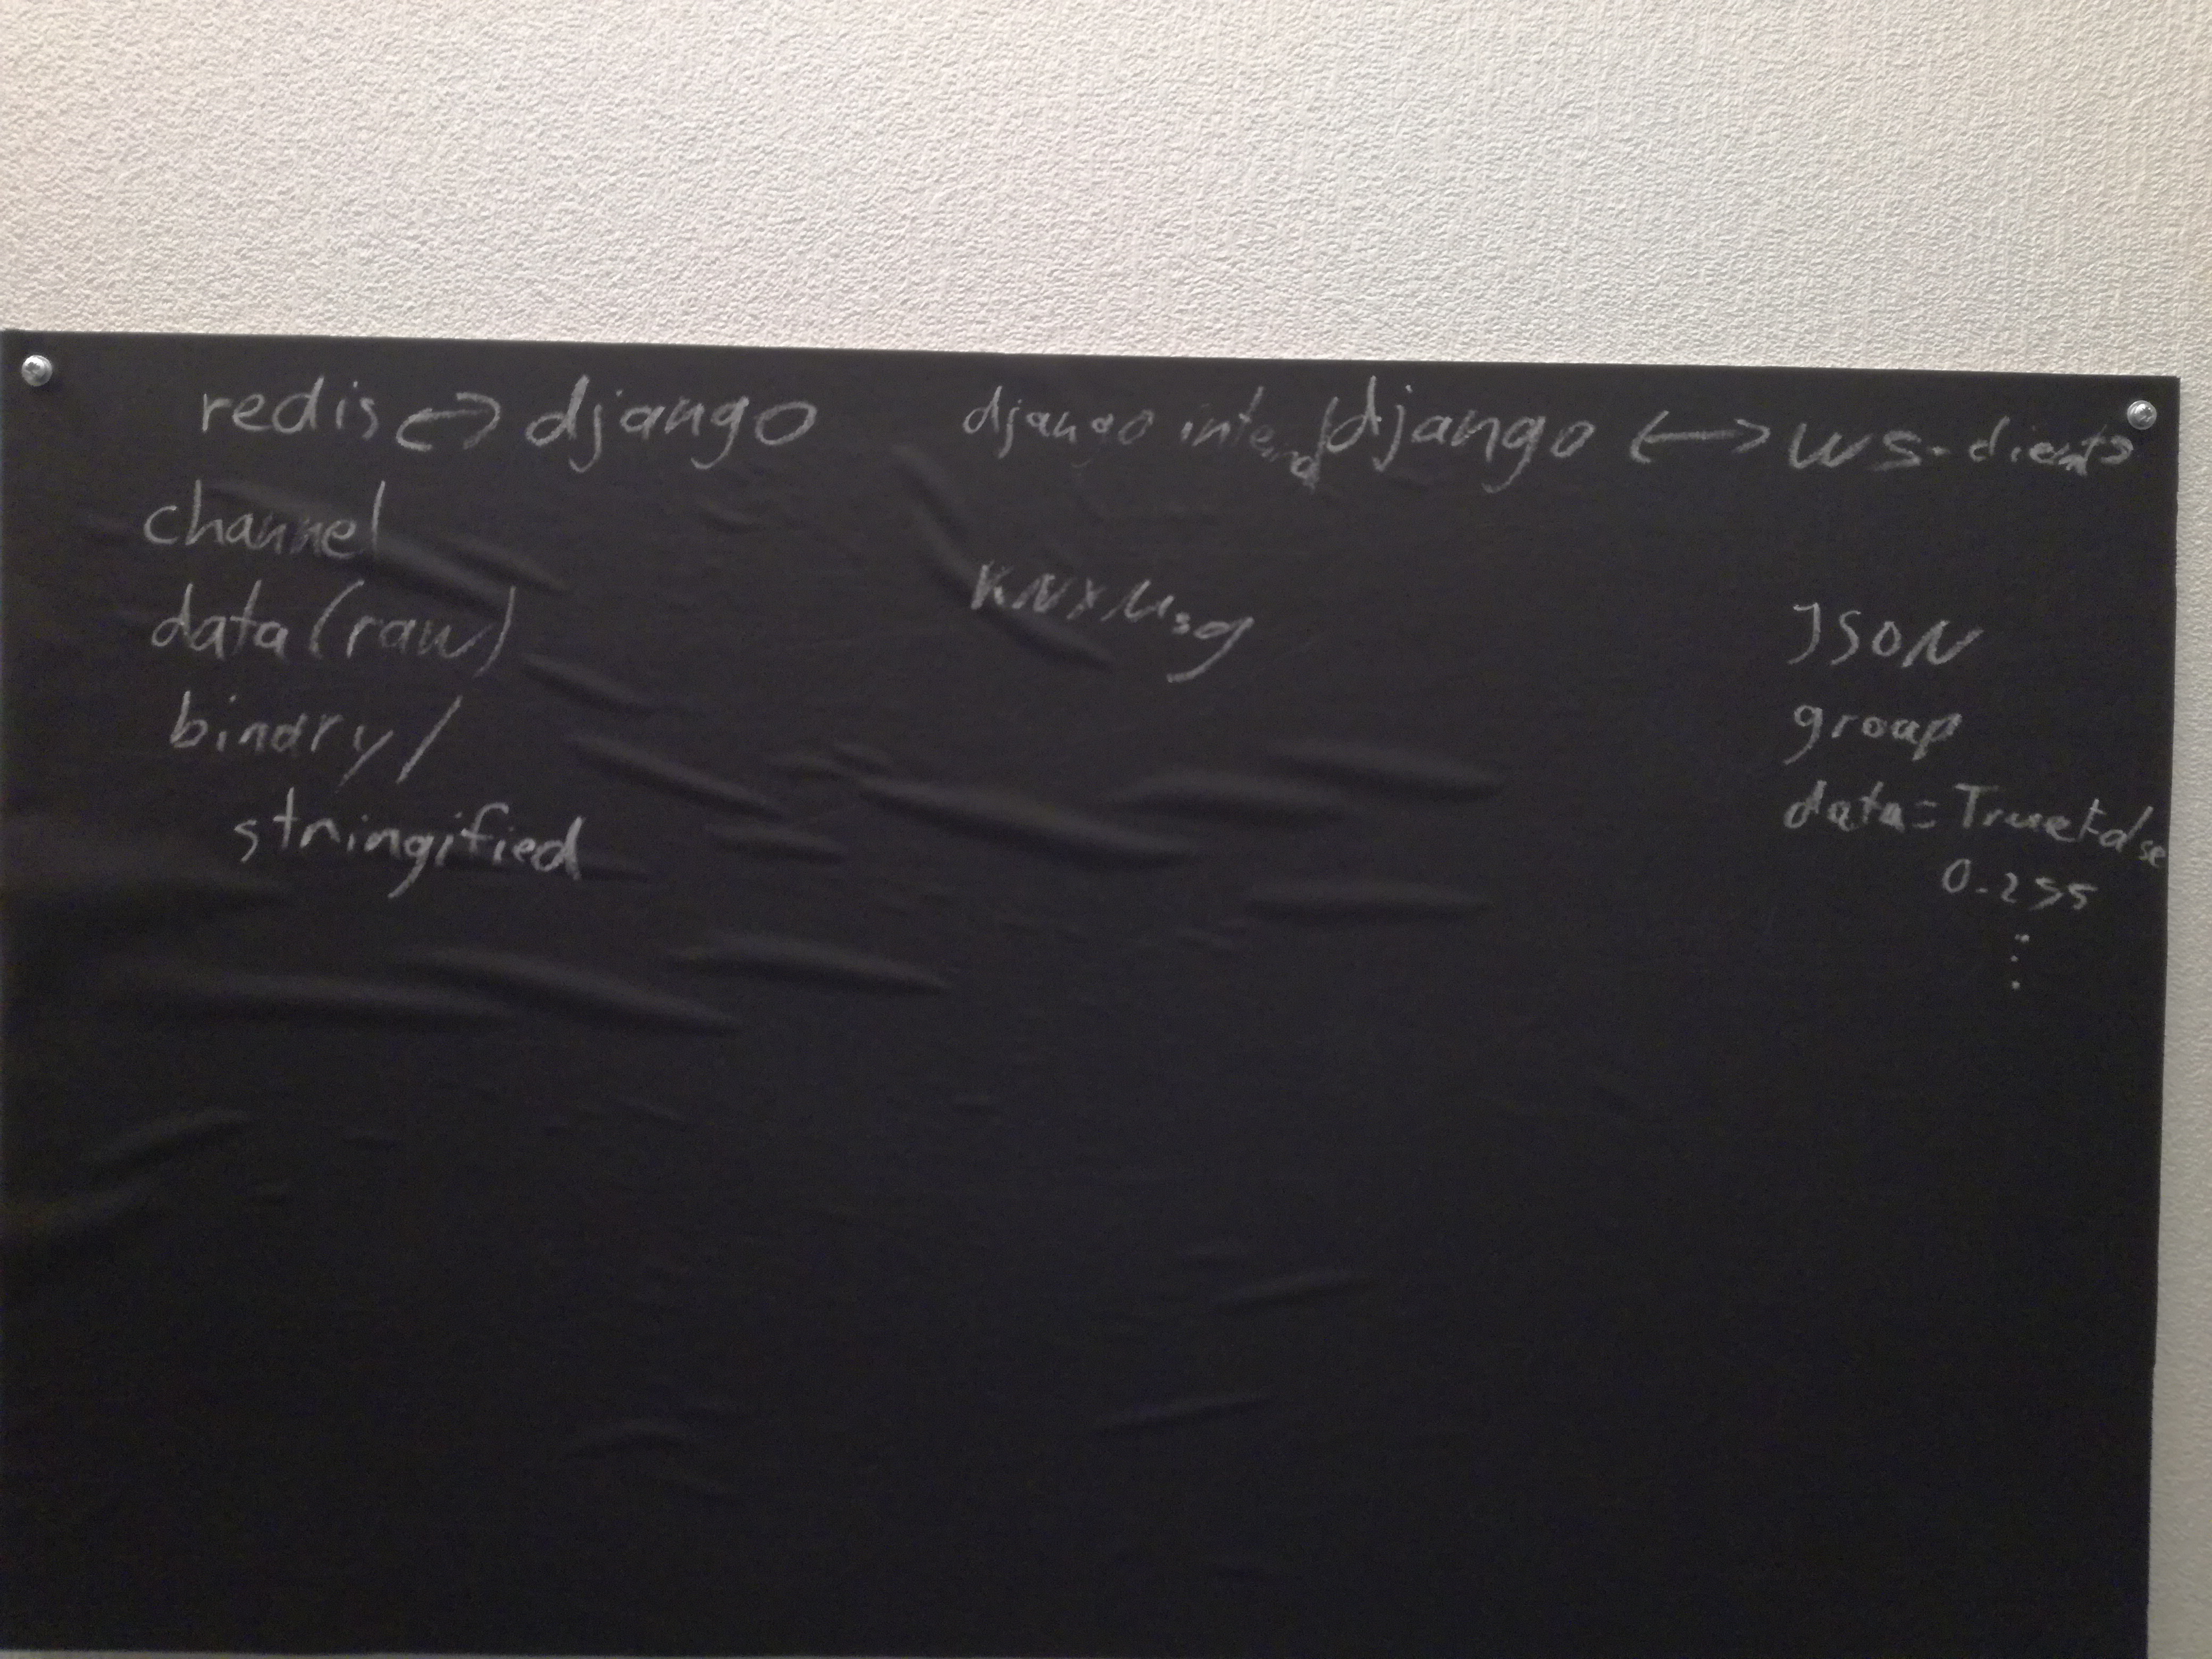 redis <-> django
channel
data (raw)
binary /
stringified
django intern
KNXMsg
django <--> ws-clients
JSON
group
data = True False
0-255
⋮